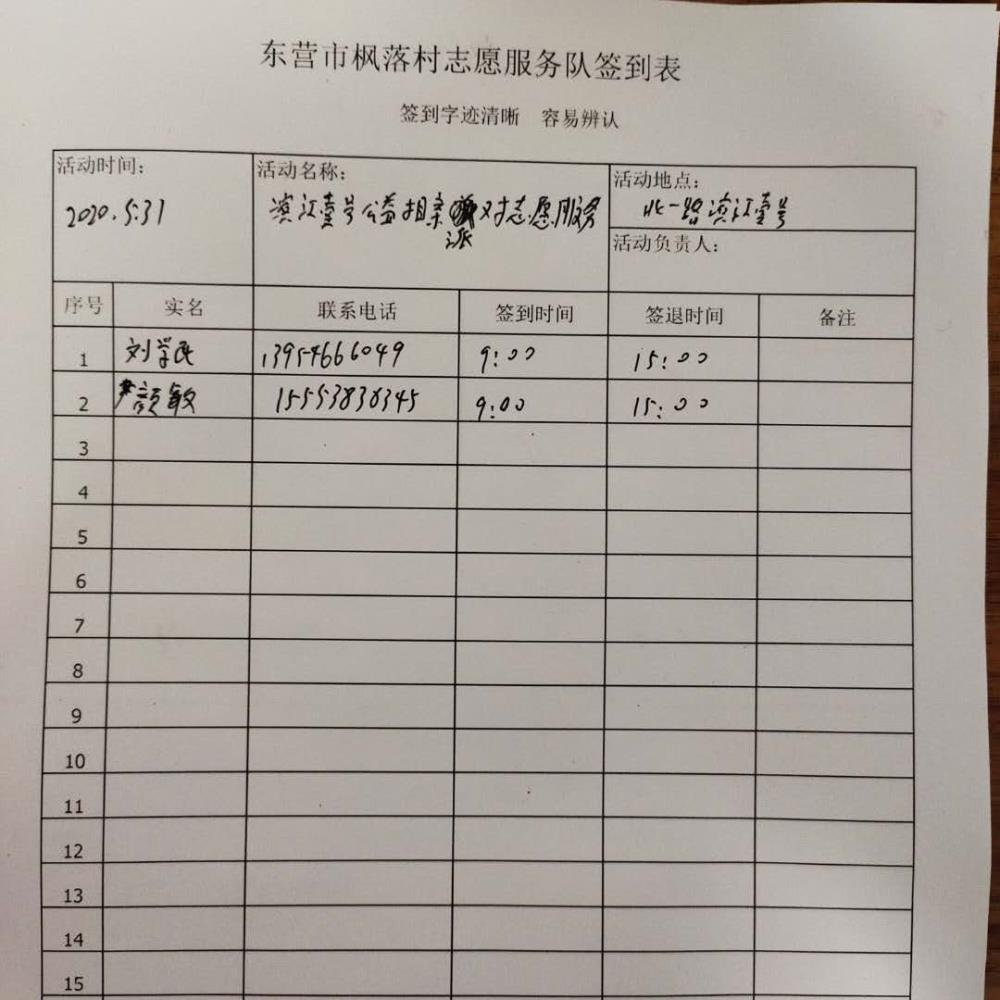 东营市枫落村志愿服务队签到表
签到字迹清晰 容易辨认
活动时间: 活动名称: 活动地点:
2020.5.31 滨江壹号公益相亲派对志愿服务 北一路滨江壹号
活动负责人:
序号 实名 联系电话 签到时间 签退时间 备注
1 刘学民 13954666049 9:00 15:00
2 颜敏 15553838345 9:00 15:00
3
4
5
6
7
8
9
10
11
12
13
14
15